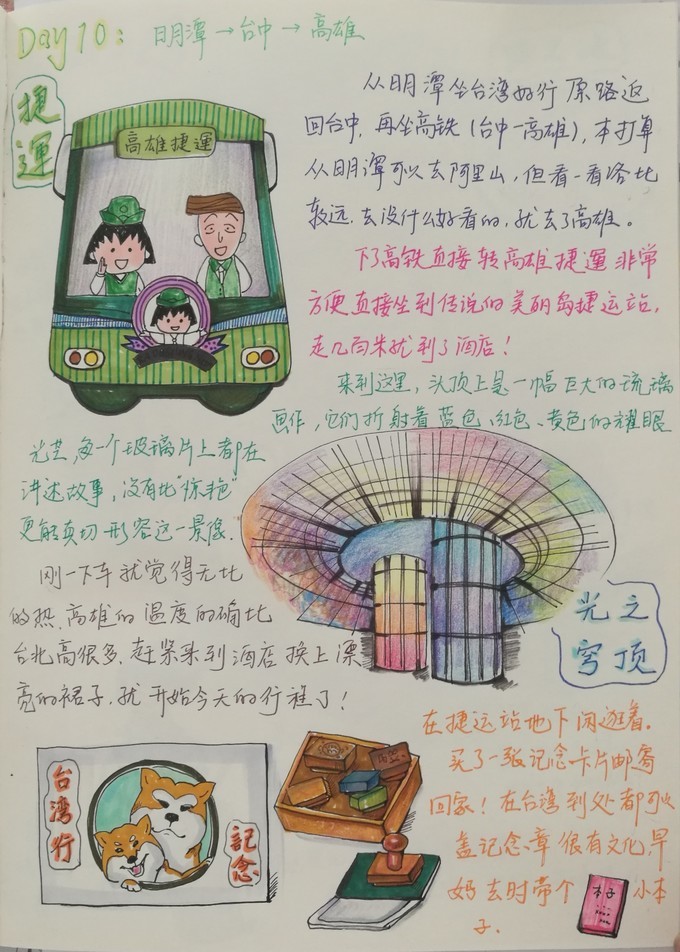 Day 10: 日月潭→台中→高雄
捷
運
高雄捷運
从日月潭坐台湾好行原路返
回台中，再坐高铁(台中-高雄)，本打算
从日月潭可以去阿里山，但看一看路比
较远.去没什么好看的，就去了高雄。
下了高铁直接转高雄捷運非常
方便直接坐到传说的美丽岛捷运站，
走几百米就到了酒店！
来到这里，头顶上是一幅巨大的琉璃
画作，它们折射着蓝色、红色、黄色的耀眼
光芒，每一个玻璃片上都在
讲述故事，没有比“惊艳”
更能真切形容这一景像.
刚一下车就觉得无比
的热.高雄的温度的确比
台北高很多.赶紧来到酒店换上漂
亮的裙子.就开始今天的行程了！
光之
穹顶
在捷运站地下闲逛着.
买了一张记念卡片邮寄
回家！在台湾到处都可以
盖记念章很有文化,早
妈去时带个 本子 小本
子.
台
湾
行
記
念